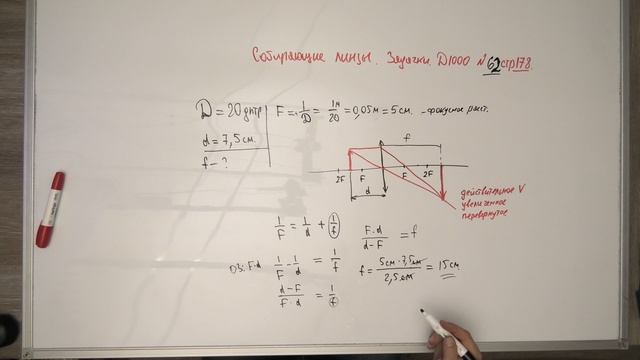 Собирающие линзы. Задачки. D1000 №62 стр178.
D = 20дптр
F = 1/D = 1м/20 = 0,05м = 5см. - фокусное расст.
d = 7,5см.
f - ?
f
2F F F 2F
d
действительное V
увеличенное
перевёрнутое
1/F = 1/d + 1/f
F·d/d-F = f
ОЗ: F·d 1/F - 1/d = 1/f
f = 5см·7,5см/2,5см = 15см.
d-F/F·d = 1/f